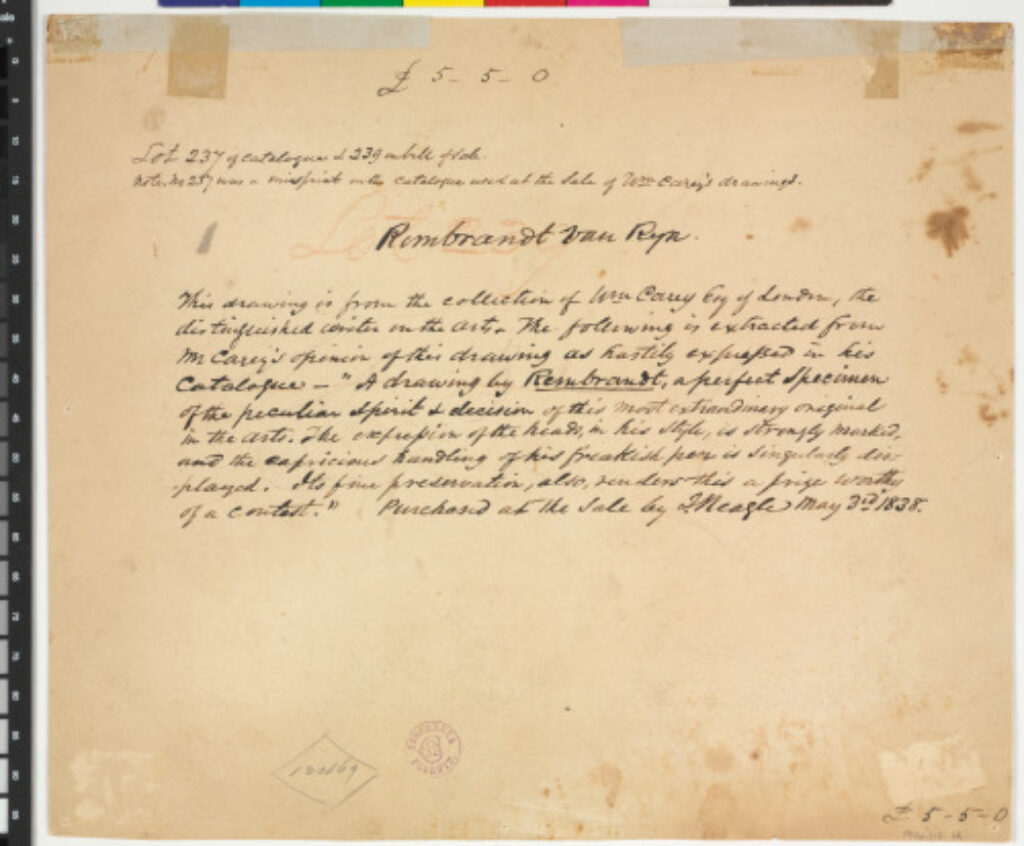 £ 5 - 5 - 0
Lot 237 of catalogue & 239 in bill of sale.
Note. No 237 was a misprint in the catalogue used at the Sale of Wm Carey's drawings.
Rembrandt van Ryn.
This drawing is from the collection of Wm Carey Esq of London, the
distinguished writer on the arts. The following is extracted from
Mr Carey's opinion of this drawing as hastily expressed in his
Catalogue – "A drawing by Rembrandt, a perfect specimen
of the peculiar spirit & decision of this most extraordinary original
in the arts. The expression of the heads, in his style, is strongly marked,
and the capricious handling of his freakish pen is singularly dis-
played. Its fine preservation, also, renders this a prize worthy
of a contest." Purchased at the Sale by J Neagle May 3rd 1838.
£ 5 - 5 - 0